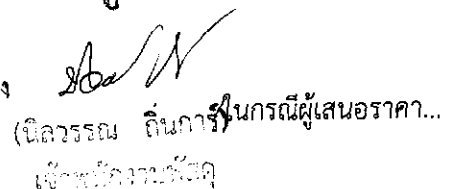 (นิลวรรณ ถิ่นการ)ในกรณีผู้เสนอราคา...
เจ้าพนักงานพัสดุ